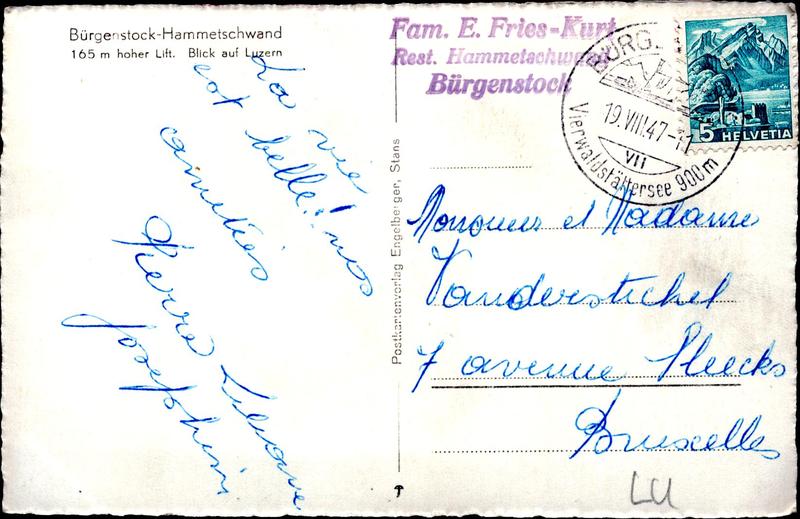 Bürgenstock-Hammetschwand
165 m hoher Lift. Blick auf Luzern
La vie
est belle! nos
amitiés
Pierre Liliane
Josephine
Postkartenverlag Engelberger, Stans
Fam. E. Fries-Kurt
Rest. Hammetschwand
Bürgenstock
BÜRG
19.VIII.47-17
VII
Vierwaldstättersee 900m
5 HELVETIA
Monsieur et Madame
Vanderstichel
7 avenue Sleeckx
Bruxelles
LU